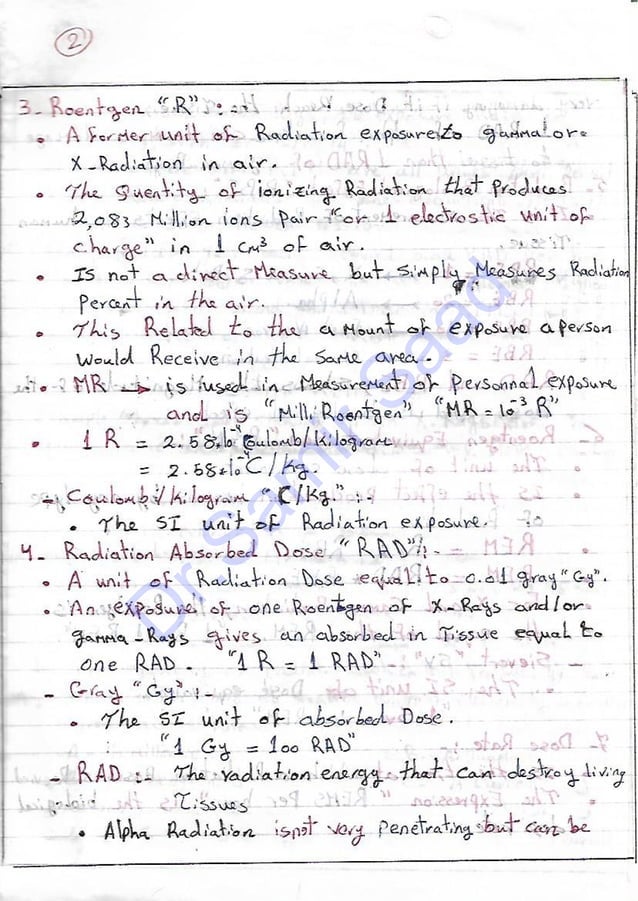 2
3- Roentgen "R" :-
• A former unit of Radiation exposure to gamma or
X-Radiation in air.
• The Quentity of ionizing Radiation that produces
2,083 Million ions pair "or 1 electrostic unit of
charge" in 1 cm³ of air.
• Is not a direct Measure but simply Measures Radiation
percent in the air.
• This Related to the amount of exposure a person
would Receive in the same area.
• MR → is used in Measurement of personnal exposure
and is "Milli Roentgen" "MR = 10⁻³ R"
• 1 R = 2.58x10⁻⁴ Coulomb/kilogram
= 2.58x10⁻⁴ C/kg.
- Coulomb/kilogram "C/kg" :-
• The SI unit of Radiation exposure.
4- Radiation Absorbed Dose "RAD" :-
• A unit of Radiation Dose equal to 0.01 gray "Gy".
• An exposure of one Roentgen of X-Rays and/or
gamma-Rays gives an absorbed in Tissue equal to
one RAD. "1 R = 1 RAD"
- Gray "Gy" :-
• The SI unit of absorbed Dose.
"1 Gy = 100 RAD"
- RAD :- The radiation energy that can destroy living
Tissues
• Alpha Radiation is not very penetrating but can be
Dr Samir Saad